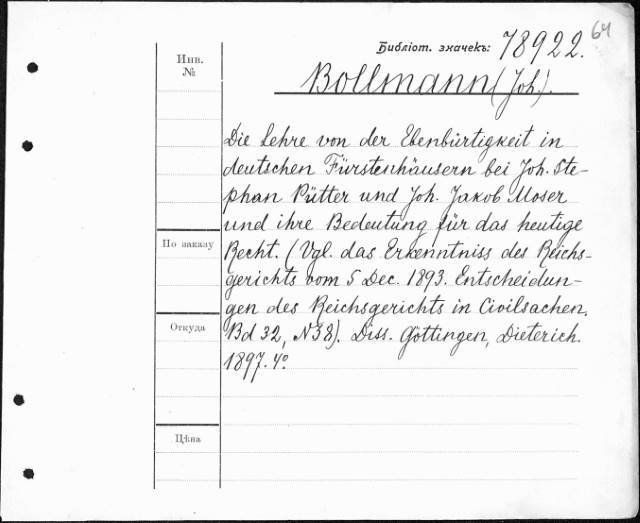 64
Библіот. значекъ: 78922.
Инв.
№
Bollmann (Joh.).
Die Lehre von der Ebenbürtigkeit in
deutschen Fürstenhäusern bei Joh. Ste-
phan Pütter und Joh. Jakob Moser
und ihre Bedeutung für das heutige
По заказу
Recht. (Vgl. das Erkenntniss des Reichs-
gerichts vom 5 Dec. 1893. Entscheidun-
gen des Reichsgerichts in Civilsachen,
Откуда
Bd 32, N38). Diss. Göttingen, Dieterich.
1897. 4º
Цѣна